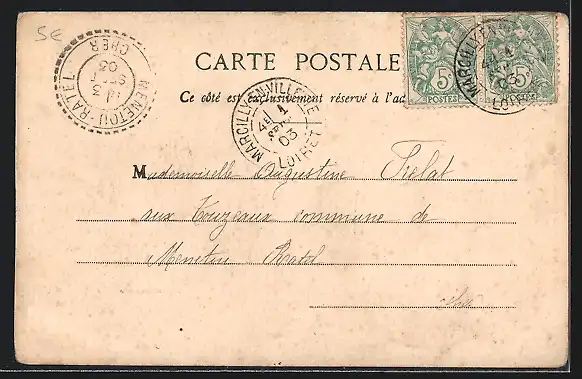 5E
CARTE POSTALE
Ce côté est exclusivement réservé à l'ad
MENETOU-RATEL
CHER
SEPT
03
MARCILLY-EN-VILLETTE
4E
SEPT
03
LOIRET
5c
POSTES
5c
POSTES
MARCILLY-EN-VILLETTE
4E
03
LOIRET
Mademoiselle Augustine Prelat
aux Touzeaux commune de
Menetou Ratel
Cher